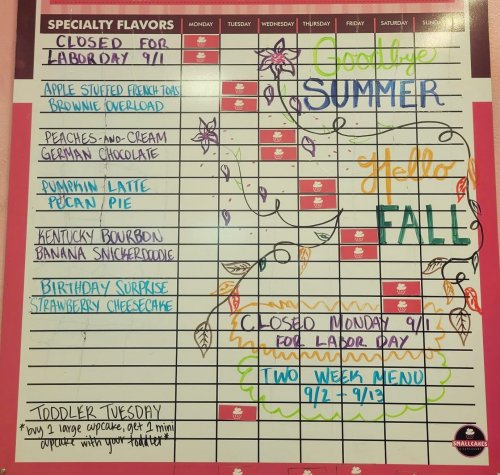 SPECIALTY FLAVORS MONDAY TUESDAY WEDNESDAY THURSDAY FRIDAY SATURDAY SUNDAY
CLOSED FOR
LABOR DAY 9/1
Goodbye
SUMMER
APPLE STUFFED FRENCH TOAST
BROWNIE OVERLOAD
PEACHES-AND-CREAM
GERMAN CHOCOLATE
Hello
FALL
PUMPKIN LATTE
PECAN PIE
KENTUCKY BOURBON
BANANA SNICKERDOODLE
BIRTHDAY SURPRISE
STRAWBERRY CHEESECAKE
CLOSED MONDAY 9/1
FOR LABOR DAY
TWO WEEK MENU
9/2 - 9/13
TODDLER TUESDAY
*buy 1 large cupcake, get 1 mini
cupcake with your toddler*
SMALLCAKES